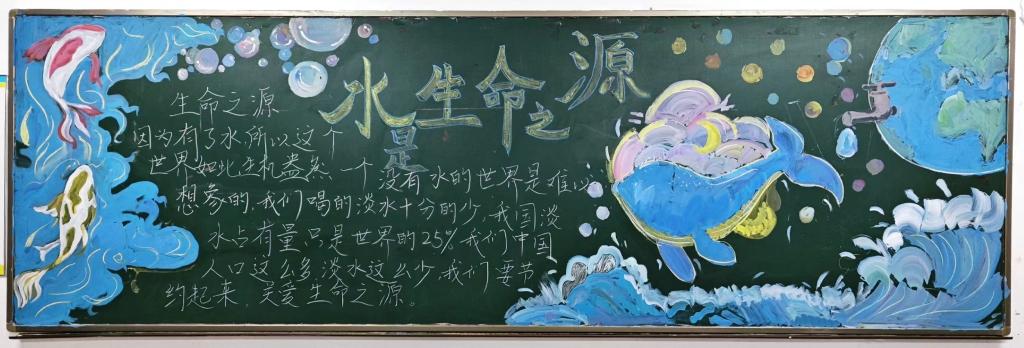 水是生命之源
生命之源
因为有了水所以这个
世界如此生机盎然一个没有水的世界是难以
想象的,我们喝的淡水十分的少,我国淡
水占有量只是世界的25%我们中国
人口这么多淡水这么少,我们要节
约起来,关爱生命之源。